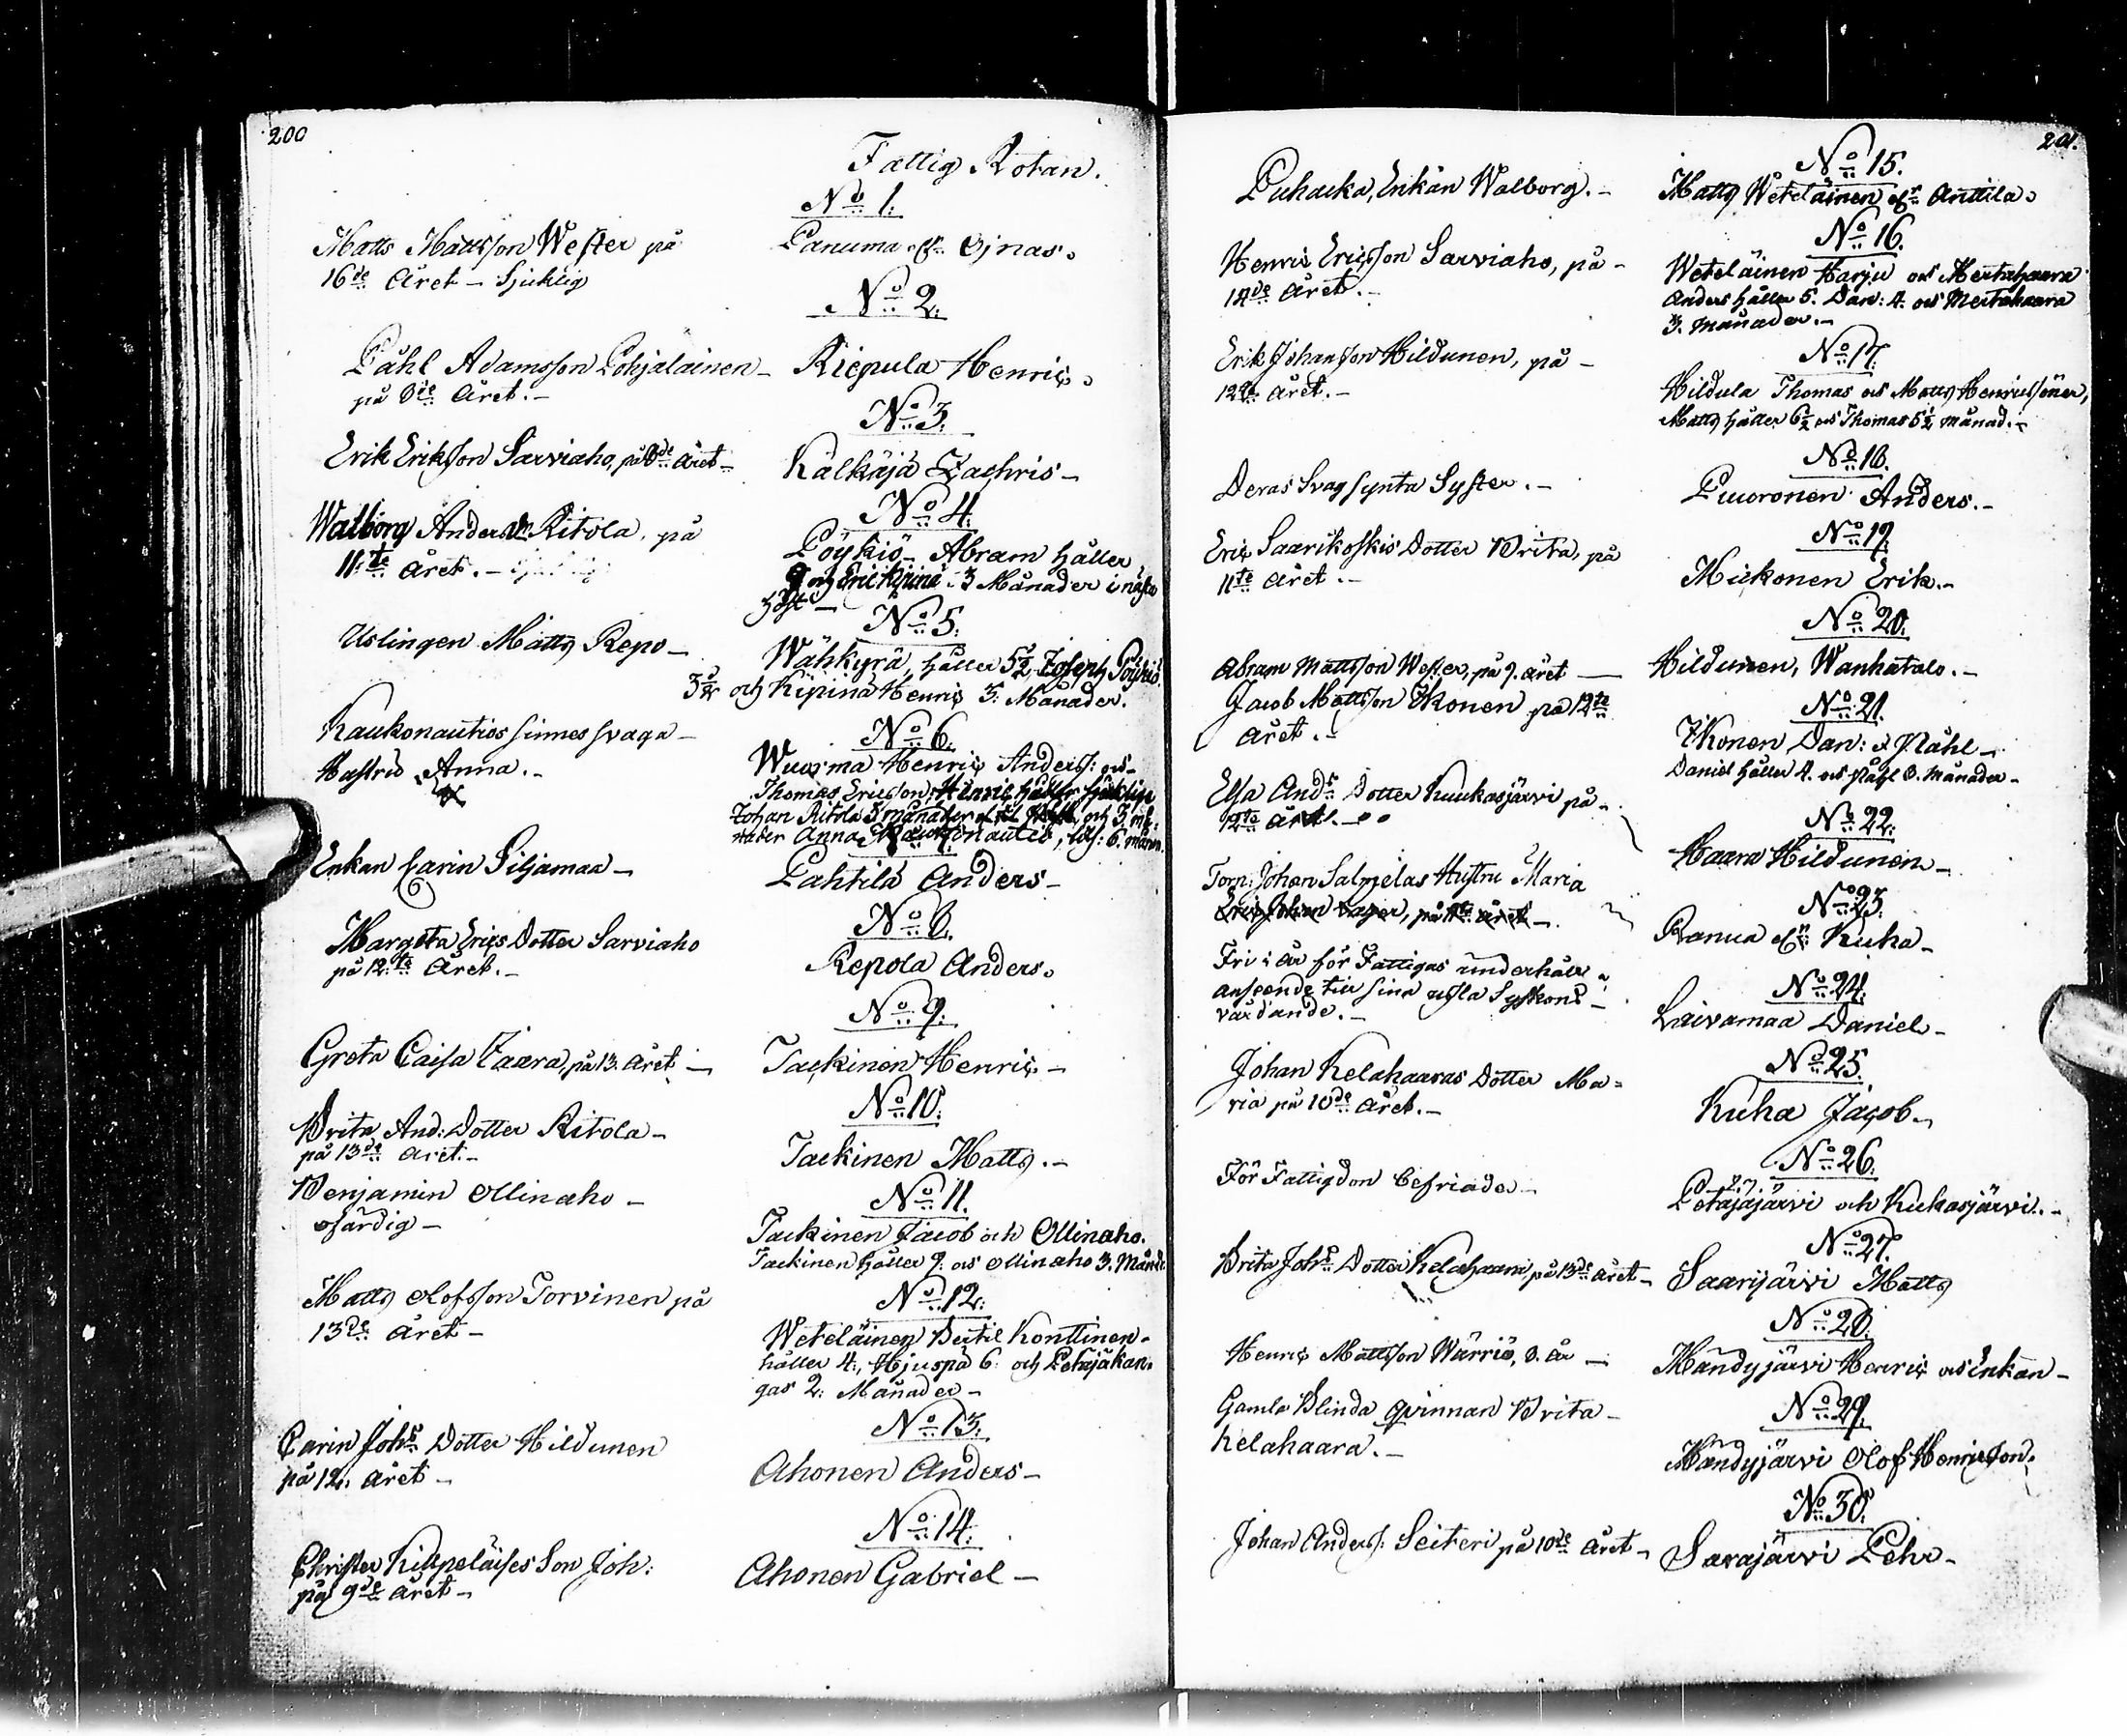 200
Fattig Rotan.
No 1.
Matts Mattsson Wester på
16de Året - Sjuklig
Panuma Ojnas.
No 2.
Påhl Adamsson Pohjalainen -
på 8de Året. -
Riepula Henric.
No 3.
Erik Eriksson Sarviaho, på 8de Året -
Kälkäjä Zachris -
No 4.
Walborg Anders Dr Ritola, på
11te Året. -
Pöykiö - Abram håller
9 och Eric Kipinä 3 Månader i nästa
höst -
No 5.
Uslingen Matts Repo -
Wähkyrä, håller 5½, Joseph Pöykiö
3½ och Kipinä Henric 3. Månader.
No 6.
Kaukonautios sinnes svaga -
Hustru Anna. -
Wuorma Henric Anders: och
Thomas Ericsson, Henric håller
Johan Ritola 3 månader och 3. må-
nader Anna Kaukonautio, 6. mån.
Enkan Carin Siljamaa -
Pahtila Anders -
No 8.
Margeta Erics Dotter Sarviaho
på 12te Året. -
Repola Anders.
No 9.
Greta Caisa Vaara, på 13. Året -
Tackinen Henric -
No 10.
Brita And: Dotter Ritola -
på 13de Året. -
Tackinen Matts. -
No 11.
Benjamin Ollinaho -
ofärdig -
Tackinen Jacob och Ollinaho.
Tackinen håller 9. och Ollinaho 3. Månad:
No 12.
Matts Olofsson Torvinen på
13de Året -
Weteläinen Bertil Konttinen
håller 4., Hjuspä 6. och Petäjäkan-
gas 2. Månader -
No 13.
Carin Johs Dotter Hildunen
på 12. Året -
Ahonen Anders -
No 14.
Christer Kilpeläises Son Joh:
på 9de Året -
Ahonen Gabriel -
201.
No 15.
Puhacka, Enkän Walborg. -
Matts Weteläinen Anttila.
No 16.
Henric Ericsson Sarviaho, på -
14de Året. -
Weteläinen Harju och Mertahaara
Anders håller 5. Dan: 4. och Mertahaara
3. Månader. -
No 17.
Erik Johansson Hildunen, på -
12te Året. -
Hildula Thomas och Matts Henrics söner,
Matts håller 6½ och Thomas 5½ månad. -
No 18.
Deras Svagsynta Syster. -
Puuronen Anders. -
No 19.
Eric Saarikoskis Dotter Brita, på
11te Året. -
Mickonen Erik. -
No 20.
Abram Mattsson Wester, på 9. året -
Hildunen, Wanhatalo. -
No 21.
Jacob Mattsson Ikonen på 12te
Året. -
Ikonen Dan: & Påhl -
Daniel håller 4. och Påhl 8. Månader -
No 22.
Elsa Ands Dotter Kuukasjärvi på -
12te Året. -
Haara Hildunen -
No 23.
Torp: Johan Salmelas Hustru Maria
Eric Johan på 11te Året -
Ranua Kuha -
No 24.
Fri i år för Fattigas underhåll i
anseende till sina usla Syskons -
vårdande. -
Laivamaa Daniel -
No 25.
Johan Kelahaaras Dotter Ma-
ria på 10de Året. -
Kuha Jacob -
No 26.
För Fattigdom befriade -
Petäjäjärvi och Kuukasjärvi. -
No 27.
Brita Johs Dotter Kelahaara på 13de Året -
Saarijärvi Matts
No 28.
Henric Mattsson Wärriö, 8. År -
Mändyjärvi Henric och Enkan -
No 29.
Gamla Blinda Qvinnan Brita -
Kelahaara. -
Mändyjärvi Olof Henricsson.
No 30.
Johan Anders: Seiteri på 10de Året -
Sarajärvi Pehr -